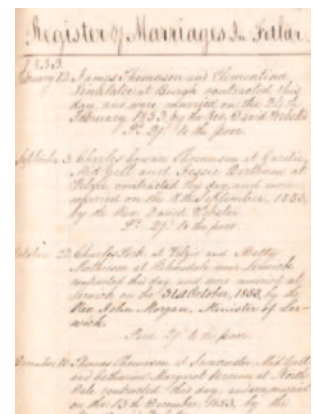 Register of Marriages In Fetlar.
1853
February 12 James Thomason and Clementina
at Burgh contracted this
day, and were married on the 24th
February 1853 by the Rev. David Webster
Pd. 2/ to the poor.
September 3 Charles Thomason at
Mid Yell and Jessie at
contracted this day and were
married on the 8th September, 1853,
by the Rev. David Webster
Pd. 2/ to the poor
October 22 Charles at and
at near
contracted this day, and were married at
Lerwick on the 31st October, 1853, by the
Rev. John Morgan, Minister of Ler-
wick.
Paid 2/ to the poor.
December 10 Thomas Thomason at Mid Yell
and Catharine Margaret Brown at North
Dale contracted this day, and were married
on the 15th December, 1853, by the